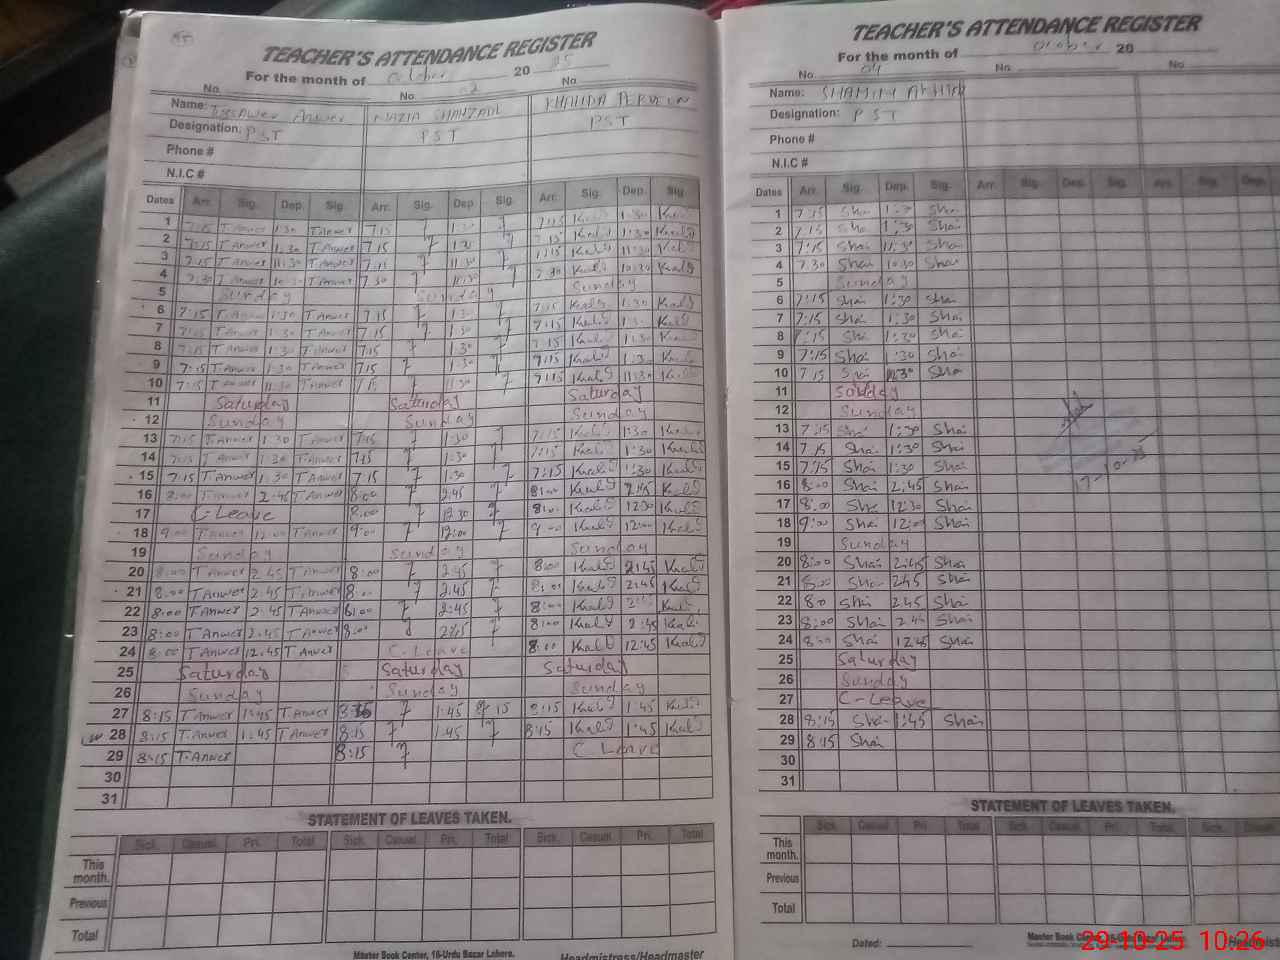 TEACHER'S ATTENDANCE REGISTER
For the month of October 20 25
No. No. 02 No.
Name: Tassawer Anwer NAZIA SHAHZADI KHALIDA PERVEEN
Designation: PST PST PST
Phone #
N.I.C #
Dates Arr. Sig. Dep. Sig. Arr. Sig. Dep. Sig. Arr. Sig. Dep. Sig.
1 7:15 T.Anwer 1:30 T.Anwer 7:15 1:30 7:15 1:30
2 7:15 T.Anwer 1:30 T.Anwer 7:15 1:30 7:15 1:30
3 7:15 T.Anwer 11:30 T.Anwer 7:15 11:30 7:15 11:30
4 7:30 T.Anwer 10:30 T.Anwer 7:30 10:30 7:30 10:30
5 Sunday Sunday Sunday
6 7:15 T.Anwer 1:30 T.Anwer 7:15 1:30 7:15 1:30
7 7:15 T.Anwer 1:30 T.Anwer 7:15 1:30 7:15 1:30
8 7:15 T.Anwer 1:30 T.Anwer 7:15 1:30 7:15 1:30
9 7:15 T.Anwer 1:30 T.Anwer 7:15 1:30 7:15 1:30
10 7:15 T.Anwer 11:30 T.Anwer 7:15 11:30 7:15 11:30
11 Saturday Saturday Saturday
12 Sunday Sunday Sunday
13 7:15 T.Anwer 1:30 T.Anwer 7:15 1:30 7:15 1:30
14 7:15 T.Anwer 1:30 T.Anwer 7:15 1:30 7:15 1:30
15 7:15 T.Anwer 1:30 T.Anwer 7:15 1:30 7:15 1:30
16 8:00 T.Anwer 2:45 T.Anwer 8:00 2:45 8:00 2:45
17 C-Leave 8:00 12:30 8:00 12:30
18 9:00 T.Anwer 12:00 T.Anwer 9:00 12:00 9:00 12:00
19 Sunday Sunday Sunday
20 8:00 T.Anwer 2:45 T.Anwer 8:00 2:45 8:00 2:45
21 8:00 T.Anwer 2:45 T.Anwer 8:00 2:45 8:00 2:45
22 8:00 T.Anwer 2:45 T.Anwer 8:00 2:45 8:00 2:45
23 8:00 T.Anwer 2:45 T.Anwer 8:00 2:45 8:00 2:45
24 8:00 T.Anwer 12:45 T.Anwer C-Leave 8:00 12:45
25 Saturday Saturday Saturday
26 Sunday Sunday Sunday
27 8:15 T.Anwer 1:45 T.Anwer 1:45 8:15 8:15 1:45
28 8:15 T.Anwer 1:45 T.Anwer 8:15 1:45 8:15 1:45
29 8:15 T.Anwer 8:15 C Leave
30
31
STATEMENT OF LEAVES TAKEN.
Sick. Casual. Pri. Total Sick. Casual. Pri. Total Sick. Casual. Pri. Total
This month.
Previous
Total
Master Book Center, 16-Urdu Bazar Lahore. Headmistress/Headmaster
TEACHER'S ATTENDANCE REGISTER
For the month of October 20
No. 04 No. No.
Name: SHAMIM Akhtar
Designation: PST
Phone #
N.I.C #
Dates Arr. Sig. Dep. Sig. Arr. Sig. Dep. Sig. Arr. Sig. Dep.
1 7:15 Sha 1:30 Sha
2 7:15 Sha 1:30 Sha
3 7:15 Sha 11:30 Sha
4 7:30 Sha 10:30 Sha
5 Sunday
6 7:15 Sha 1:30 Sha
7 7:15 Sha 1:30 Sha
8 7:15 Sha 1:30 Sha
9 7:15 Sha 1:30 Sha
10 7:15 Sha 11:30 Sha
11 Saturday
12 Sunday
13 7:15 Sha 1:30 Sha
14 7:15 Sha 1:30 Sha
15 7:15 Sha 1:30 Sha
16 8:00 Sha 2:45 Sha
17 8:00 Sha 12:30 Sha
17-10-25
18 9:00 Sha 12:00 Sha
19 Sunday
20 8:00 Sha 2:45 Sha
21 8:00 Sha 2:45 Sha
22 8:0 Sha 2:45 Sha
23 8:00 Sha 2:45 Sha
24 8:00 Sha 12:45 Sha
25 Saturday
26 Sunday
27 C-Leave
28 8:15 Sha 1:45 Sha
29 8:15 Sha
30
31
STATEMENT OF LEAVES TAKEN.
Sick. Casual. Pri. Total Sick. Casual. Pri. Total Sick. Casual.
This month.
Previous
Total
Dated: Master Book Center, 16-Urdu Bazar Lahore. Headmist
29-10-25 10:26